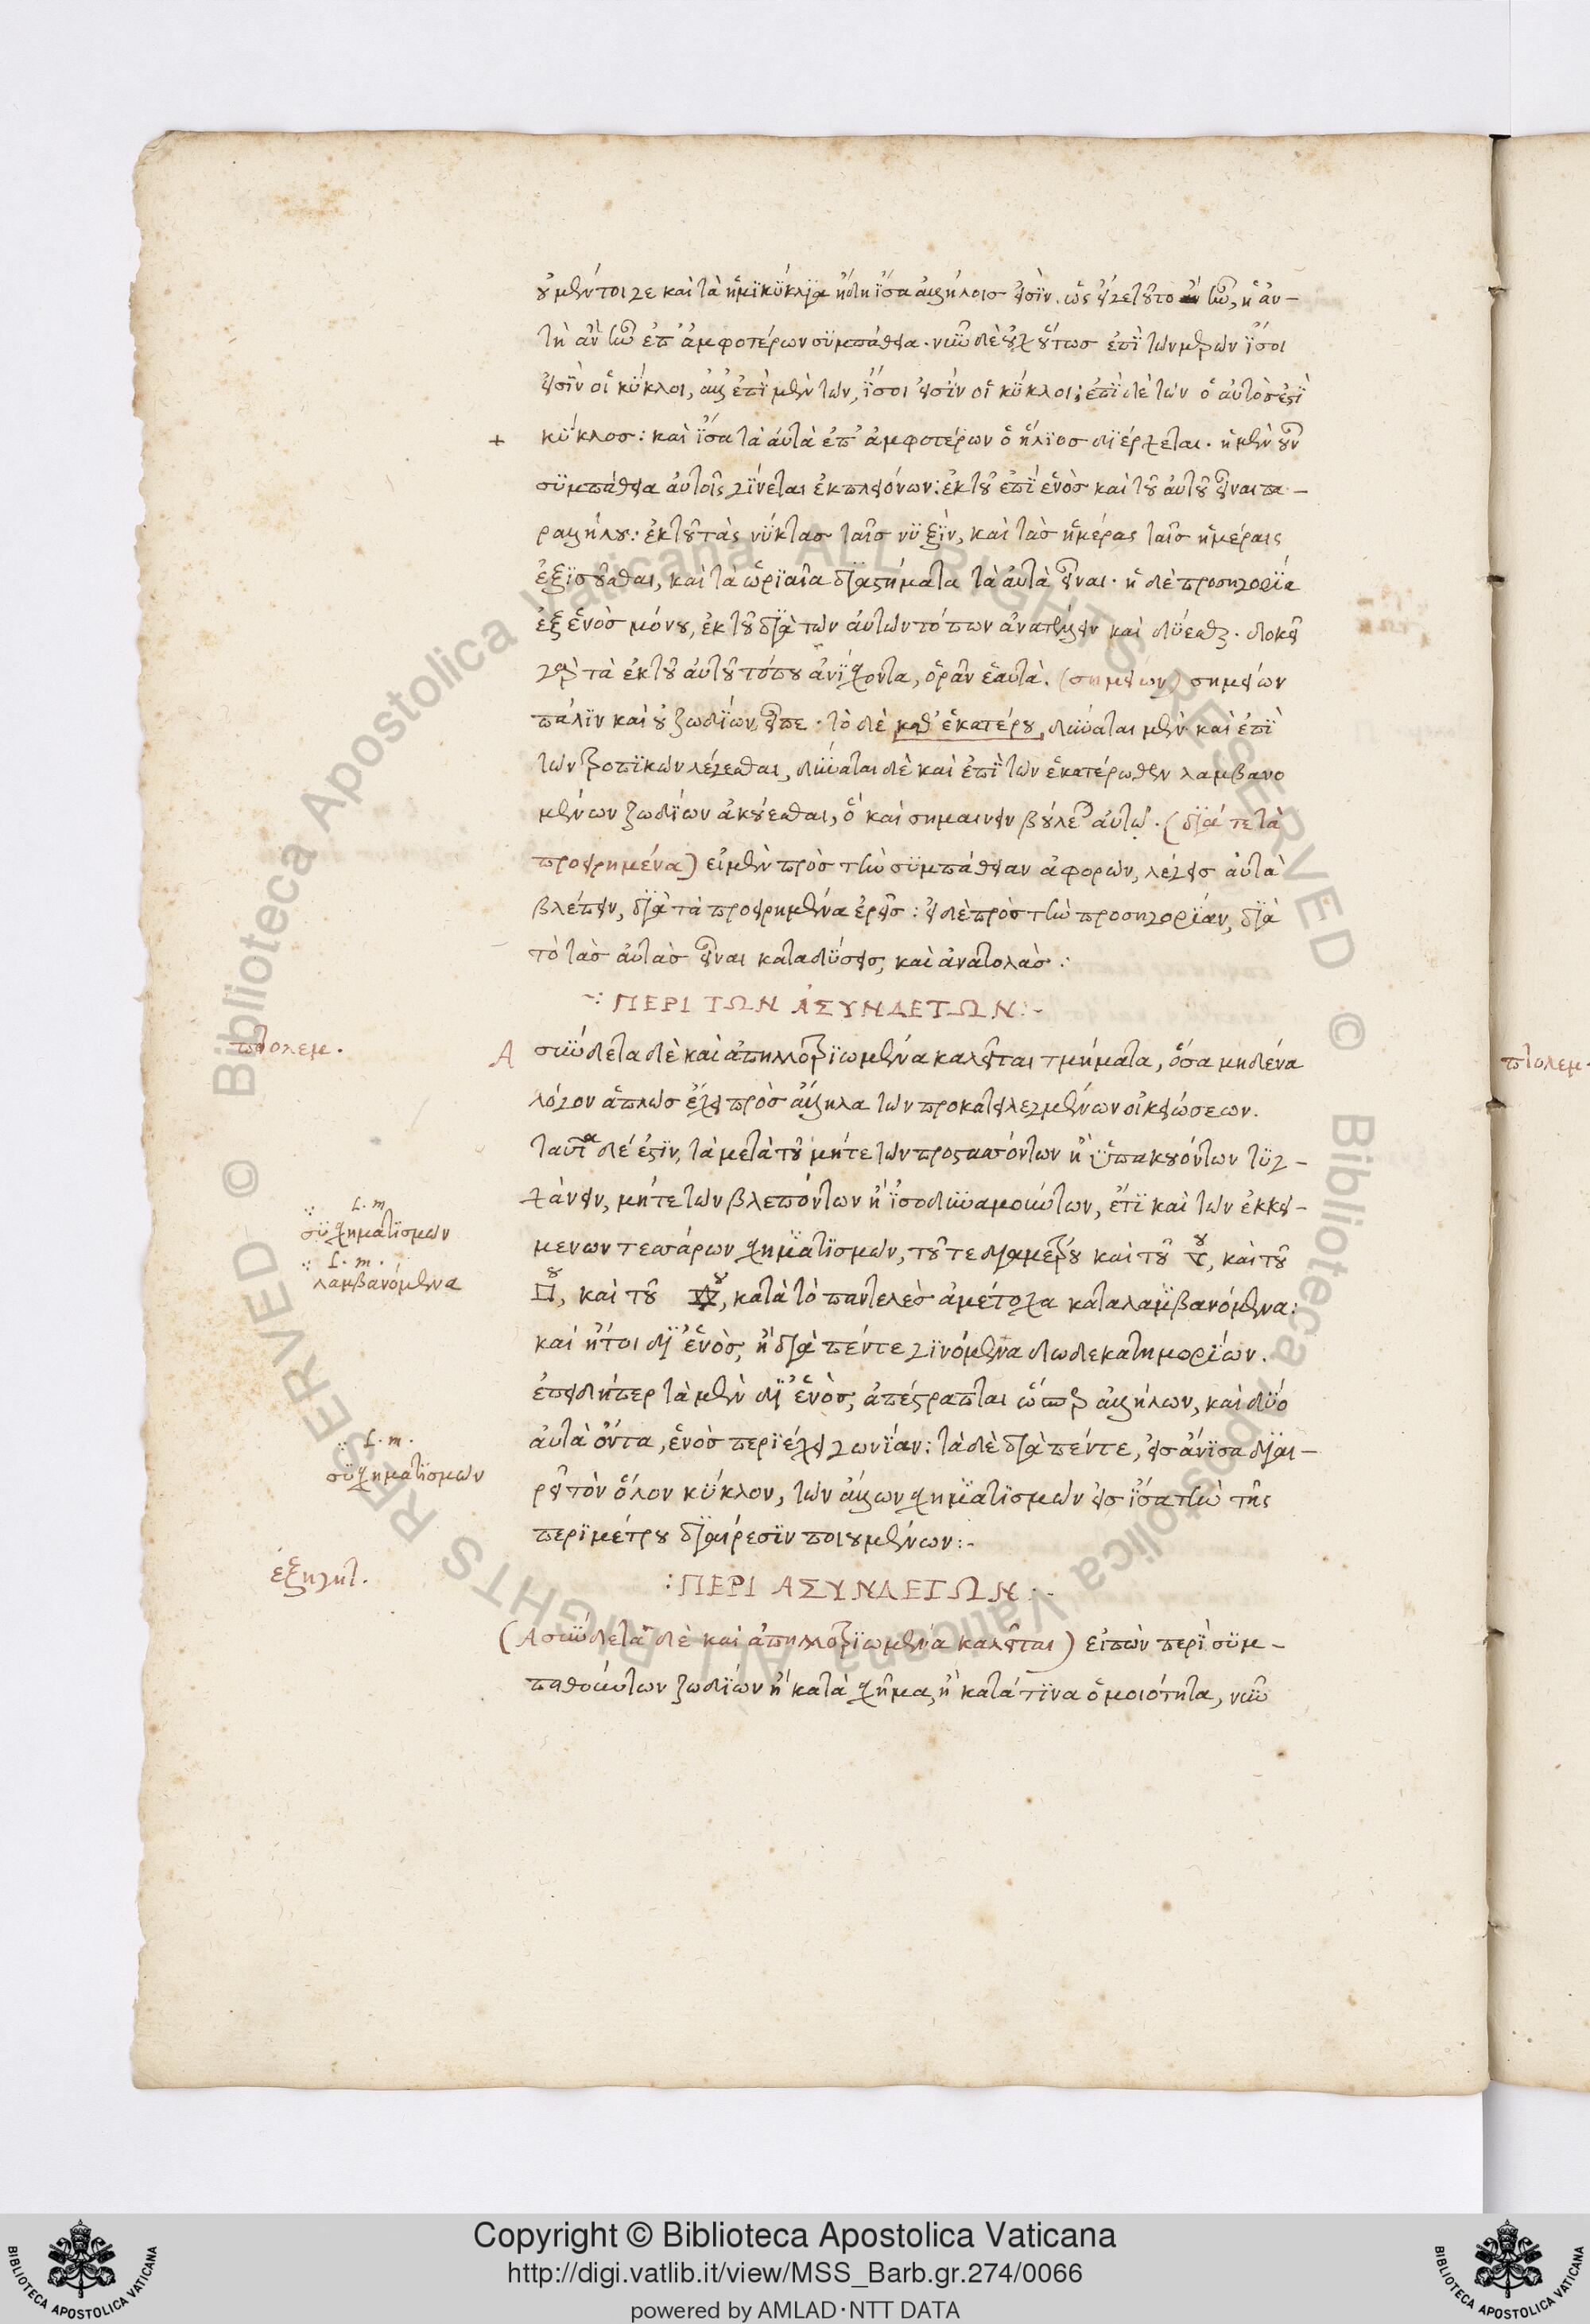 οὐ μέντοι γε καὶ τὰ ἡμικύκλια ἤδη ἴσα ἀλλήλοις εἰσίν. ὡς εἴγε τοῦτο ἦν, ἡ αὐ-
τὴ ἂν ἦν ἐπ' ἀμφοτέρων συμπάθεια. νῦν δὲ οὐχ οὕτως ἐπὶ τῶν μὲν ἴσοι
εἰσὶν οἱ κύκλοι, ἀλλ' ἐπὶ μὲν τῶν, ἴσοι εἰσὶν οἱ κύκλοι; ἐπὶ δὲ τῶν ὁ αὐτὸς ἐστὶ
+ κύκλος: καὶ ἴσα τὰ αὐτὰ ἐπ' ἀμφοτέρων ὁ ἥλιος διέρχεται. ἡ μὲν οὖν
συμπάθεια αὐτοῖς γίνεται ἐκ πλειόνων: ἐκ τοῦ ἐπὶ ἑνὸς καὶ τοῦ αὐτοῦ εἶναι πα-
ραλλήλου: ἐκ τοῦ τὰς νύκτας ταῖς νυξὶν, καὶ τὰς ἡμέρας ταῖς ἡμέραις
ἐξισοῦσθαι, καὶ τὰ ὡριαῖα διαστήματα τὰ αὐτὰ εἶναι. ἡ δὲ προσηγορία
ἐξ ἑνὸς μόνου, ἐκ τοῦ διὰ τῶν αὐτῶν τόπων ἀνατέλλειν καὶ δύεσθαι. δοκεῖ
γὰρ τὰ ἐκ τοῦ αὐτοῦ τόπου ἀνίσχοντα, ὁρᾶν ἑαυτά. (σημείων) σημείων
πάλιν καὶ οὐ ζωδίων εἶπε. τὸ δὲ καθ' ἑκατέρου, δύναται μὲν καὶ ἐπὶ
τῶν τροπικῶν λέγεσθαι, δύναται δὲ καὶ ἐπὶ τῶν ἑκατέρωθεν λαμβανο
μένων ζωδίων ἀκούεσθαι, ὃ καὶ σημαίνειν βούλεται αὐτῷ. (διά τε τὰ
προειρημένα) εἰ μὲν πρὸς τὴν συμπάθειαν ἀφορῶν, λέγεις αὐτὰ
βλέπειν, διὰ τὰ προειρημένα ἐρεῖς: εἰ δὲ πρὸς τὴν προσηγορίαν, διὰ
τὸ τὰς αὐτὰς εἶναι καταδύσεις, καὶ ἀνατολάς:
-: ΠΕΡΙ ΤΩΝ ἈΣΥΝΔΕΤΩΝ:-
πτολεμ.
Ἀσύνδετα δὲ καὶ ἀπηλλοτριωμένα καλεῖται τμήματα, ὅσα μηδένα
λόγον ἁπλῶς ἔχει πρὸς ἄλληλα τῶν προκατειλεγμένων οἰκειώσεων.
ταῦτα δέ ἐστιν, τὰ μετὰ τοῦ μήτε τῶν προστασσόντων ἢ ὑπακουόντων τυγ-
χάνειν, μήτε τῶν βλεπόντων ἢ ἰσοδυναμούντων, ἔτι καὶ τῶν ἐκκει-
∵ L. m.
συσχηματισμῶν
μενων τεσσάρων σχηματισμῶν, τοῦ τε διαμέτρου καὶ τοῦ ▽ου, καὶ τοῦ
∵ L. m.
λαμβανόμενα
□ου, καὶ τοῦ ✡ου, κατὰ τὸ παντελὲς ἀμέτοχα καταλαμβανόμενα:
καὶ ἤτοι δι' ἑνὸς, ἢ διὰ πέντε γινόμενα δωδεκατημορίων.
ἐπειδήπερ τὰ μὲν δι' ἑνὸς, ἀπέστραπται ὥσπερ ἀλλήλων, καὶ δύο
αὐτὰ ὄντα, ἑνὸς περιέχει γωνίαν: τὰ δὲ διὰ πέντε, εἰς ἄνισα διαι-
∵ L. m.
συσχηματισμῶν
ρεῖ τὸν ὅλον κύκλον, τῶν ἄλλων σχηματισμῶν εἰς ἴσα τὴν τῆς
περιμέτρου διαίρεσιν ποιουμένων:-
ἐξηγητ.
:ΠΕΡΙ ΑΣΥΝΔΕΤΩΝ:-
(Ἀσύνδετα δὲ καὶ ἀπηλλοτριωμένα καλεῖται) εἰπὼν περὶ συμ-
παθούντων ζωδίων ἢ κατὰ σχῆμα, ἢ κατά τινα ὁμοιότητα, νῦν
πτολεμ.
Copyright © Biblioteca Apostolica Vaticana
http://digi.vatlib.it/view/MSS_Barb.gr.274/0066
powered by AMLAD·NTT DATA